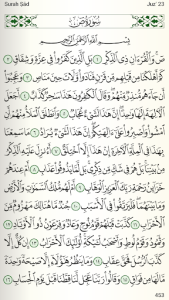 Surah Sād
Juz' 23
سُورَةُ صٓ
بِسۡمِ ٱللَّهِ ٱلرَّحۡمَٰنِ ٱلرَّحِيمِ
صٓۚ وَٱلۡقُرۡءَانِ ذِي ٱلذِّكۡرِ ١ بَلِ ٱلَّذِينَ كَفَرُواْ فِي عِزَّةٖ وَشِقَاقٖ ٢
كَمۡ أَهۡلَكۡنَا مِن قَبۡلِهِم مِّن قَرۡنٖ فَنَادَواْ وَّلَاتَ حِينَ مَنَاصٖ ٣ وَعَجِبُوٓاْ
أَن جَآءَهُم مُّنذِرٞ مِّنۡهُمۡۖ وَقَالَ ٱلۡكَٰفِرُونَ هَٰذَا سَٰحِرٞ كَذَّابٌ ٤ أَجَعَلَ
ٱلۡأٓلِهَةَ إِلَٰهٗا وَٰحِدًاۖ إِنَّ هَٰذَا لَشَيۡءٌ عُجَابٞ ٥ وَٱنطَلَقَ ٱلۡمَلَأُ مِنۡهُمۡ
أَنِ ٱمۡشُواْ وَٱصۡبِرُواْ عَلَىٰٓ ءَالِهَتِكُمۡۖ إِنَّ هَٰذَا لَشَيۡءٞ يُرَادُ ٦ مَا سَمِعۡنَا
بِهَٰذَا فِي ٱلۡمِلَّةِ ٱلۡأٓخِرَةِ إِنۡ هَٰذَآ إِلَّا ٱخۡتِلَٰقٌ ٧ أَءُنزِلَ عَلَيۡهِ ٱلذِّكۡرُ
مِنۢ بَيۡنِنَاۚ بَلۡ هُمۡ فِي شَكّٖ مِّن ذِكۡرِيۚ بَل لَّمَّا يَذُوقُواْ عَذَابِ ٨ أَمۡ عِندَهُمۡ
خَزَآئِنُ رَحۡمَةِ رَبِّكَ ٱلۡعَزِيزِ ٱلۡوَهَّابِ ٩ أَمۡ لَهُم مُّلۡكُ ٱلسَّمَٰوَٰتِ وَٱلۡأَرۡضِ
وَمَا بَيۡنَهُمَاۖ فَلۡيَرۡتَقُواْ فِي ٱلۡأَسۡبَٰبِ ١٠ جُندٞ مَّا هُنَالِكَ مَهۡزُومٞ مِّنَ
ٱلۡأَحۡزَابِ ١١ كَذَّبَتۡ قَبۡلَهُمۡ قَوۡمُ نُوحٖ وَعَادٞ وَفِرۡعَوۡنُ ذُو ٱلۡأَوۡتَادِ ١٢
وَثَمُودُ وَقَوۡمُ لُوطٖ وَأَصۡحَٰبُ لۡـَٔيۡكَةِۚ أُوْلَٰٓئِكَ ٱلۡأَحۡزَابُ ١٣ إِن كُلٌّ إِلَّا
كَذَّبَ ٱلرُّسُلَ فَحَقَّ عِقَابِ ١٤ وَمَا يَنظُرُ هَٰٓؤُلَآءِ إِلَّا صَيۡحَةٗ وَٰحِدَةٗ
مَّا لَهَا مِن فَوَاقٖ ١٥ وَقَالُواْ رَبَّنَا عَجِّل لَّنَا قِطَّنَا قَبۡلَ يَوۡمِ ٱلۡحِسَابِ ١٦
453